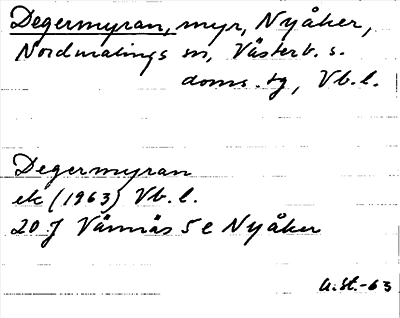 Degermyran, myr, Nyåker,
Nordmalings sn, Västerb. s.
doms. tg, Vb. l.
Degermyran
ek (1963) Vb. l.
20 J Vännäs 5 e Nyåker
A.St.-63